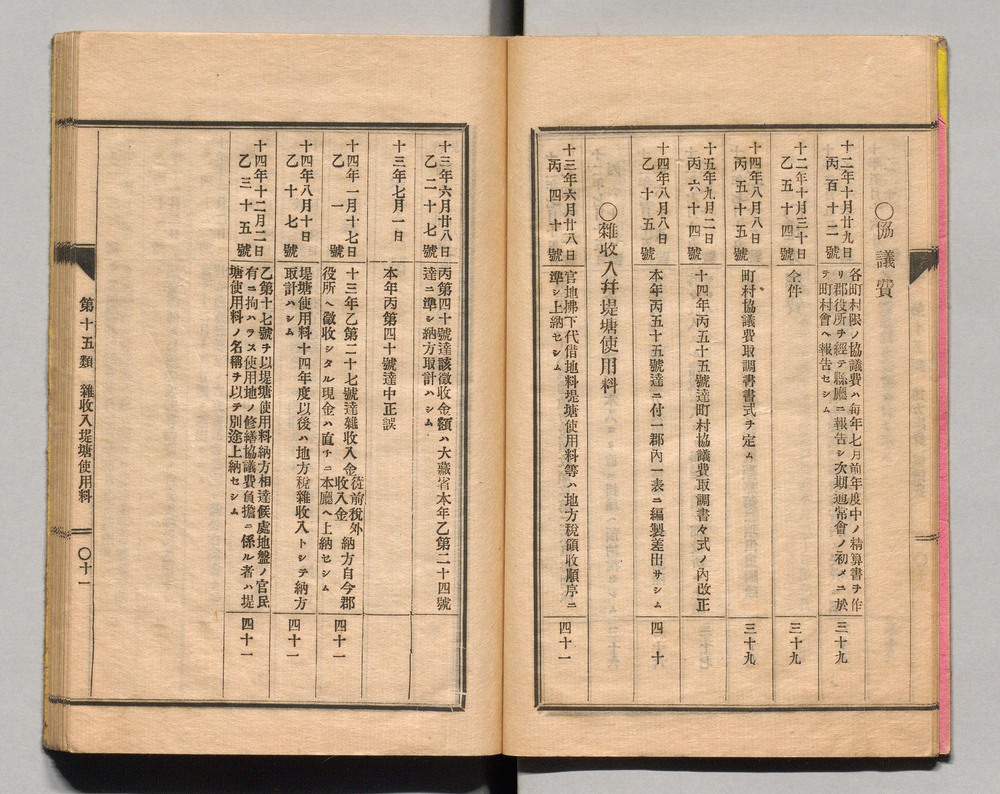 〇協議費
十二年十月廿九日
丙百十二號
各町村限ノ協議費ハ毎年七月前年度中ノ精算書ヲ作
リ郡役所ヲ經テ縣廳ニ報告シ次期通常會ノ初メニ於
テ町村會ヘ報告セシム
三十九
十二年十月三十日
乙五十四號
仝件
三十九
十四年八月八日
丙五十五號
町村協議費取調書書式ヲ定ム
三十九
十五年九月二日
丙六十四號
十四年丙五十五號達町村協議費取調書々式ノ內改正
十四年八月八日
乙十五號
本年丙五十五號達ニ付一郡內一表ニ編製差出サシム
四十
〇雜收入幷堤塘使用料
十三年六月廿八日
丙四十號
官地拂下代借地料堤塘使用料等ハ地方稅領收順序ニ
準シ上納セシム
四十一
十三年六月廿八日
乙二十七號
丙第四十號達該徵收金額ハ大藏省本年乙第二十四號
達ニ準シ納方取計ハシム
十三年七月一日
本年丙第四十號達中正誤
十四年一月十七日
乙一號
十三年乙第二十七號達雜收入金從前稅外收入金納方自今郡
役所ヘ徵收シタル現金ハ直チニ本廳ヘ上納セシム
四十一
十四年八月十日
乙十七號
堤塘使用料十四年度以後ハ地方稅雜收入トシテ納方
取計ハシム
四十一
十四年十二月二日
乙三十五號
乙第十七號ヲ以堤塘使用料納方相達候處地盤ノ官民
有ニ拘ハラス使用地ノ修繕協議費負擔ニ係ル者ハ堤
塘使用料ノ名稱ヲ以テ別途上納セシム
四十一
第十五類 雜收入堤塘使用料
〇十一